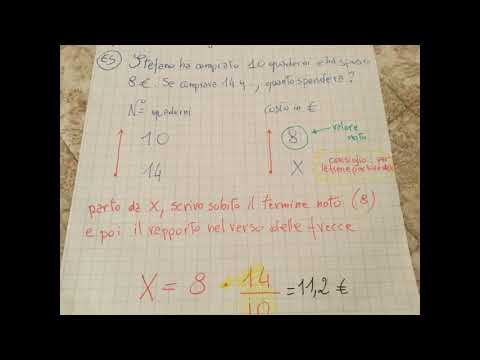 ES Stefano ha comprato 10 quaderni ed ha speso
8 €. Se comprava 14 q.., quanto spendeva?
N° quaderni
Costo in €
10
8
valore noto
14
X
consiglio per
parto da X, scrivo subito il termine noto (8)
e poi il rapporto nel verso delle frecce
X = 8 · 14/10 = 11,2 €